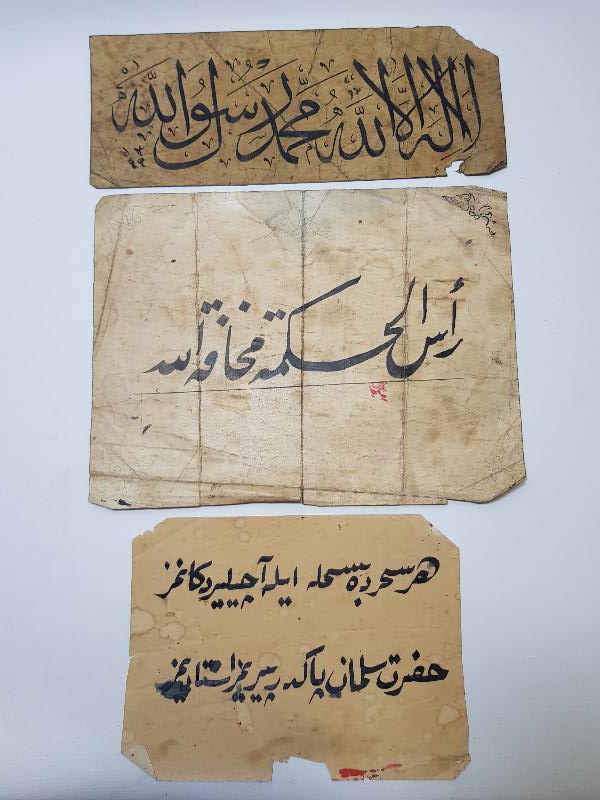 لا إله إلا الله محمد رسول الله
رأس الحكمة مخافة الله
هر سحرده بسمله ايله آچيلير دكانمز
حضرت سلمان پاكدر پيريمز استاديمز